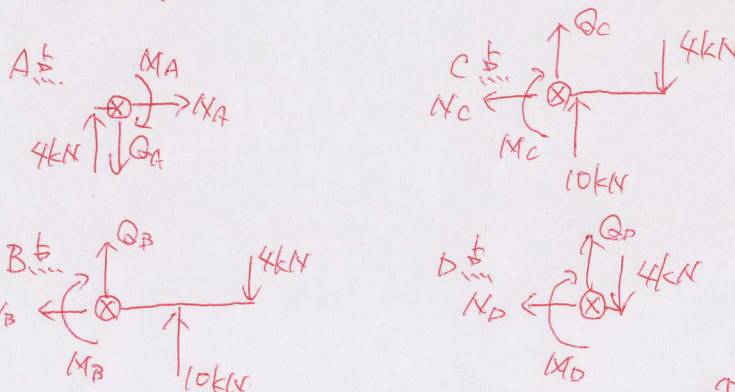 A点
MA
NA
4kN
QA
C点
QC
4kN
NC
MC
10kN
B点
QB
4kN
B
MB
10kN
D点
QD
4kN
ND
MD